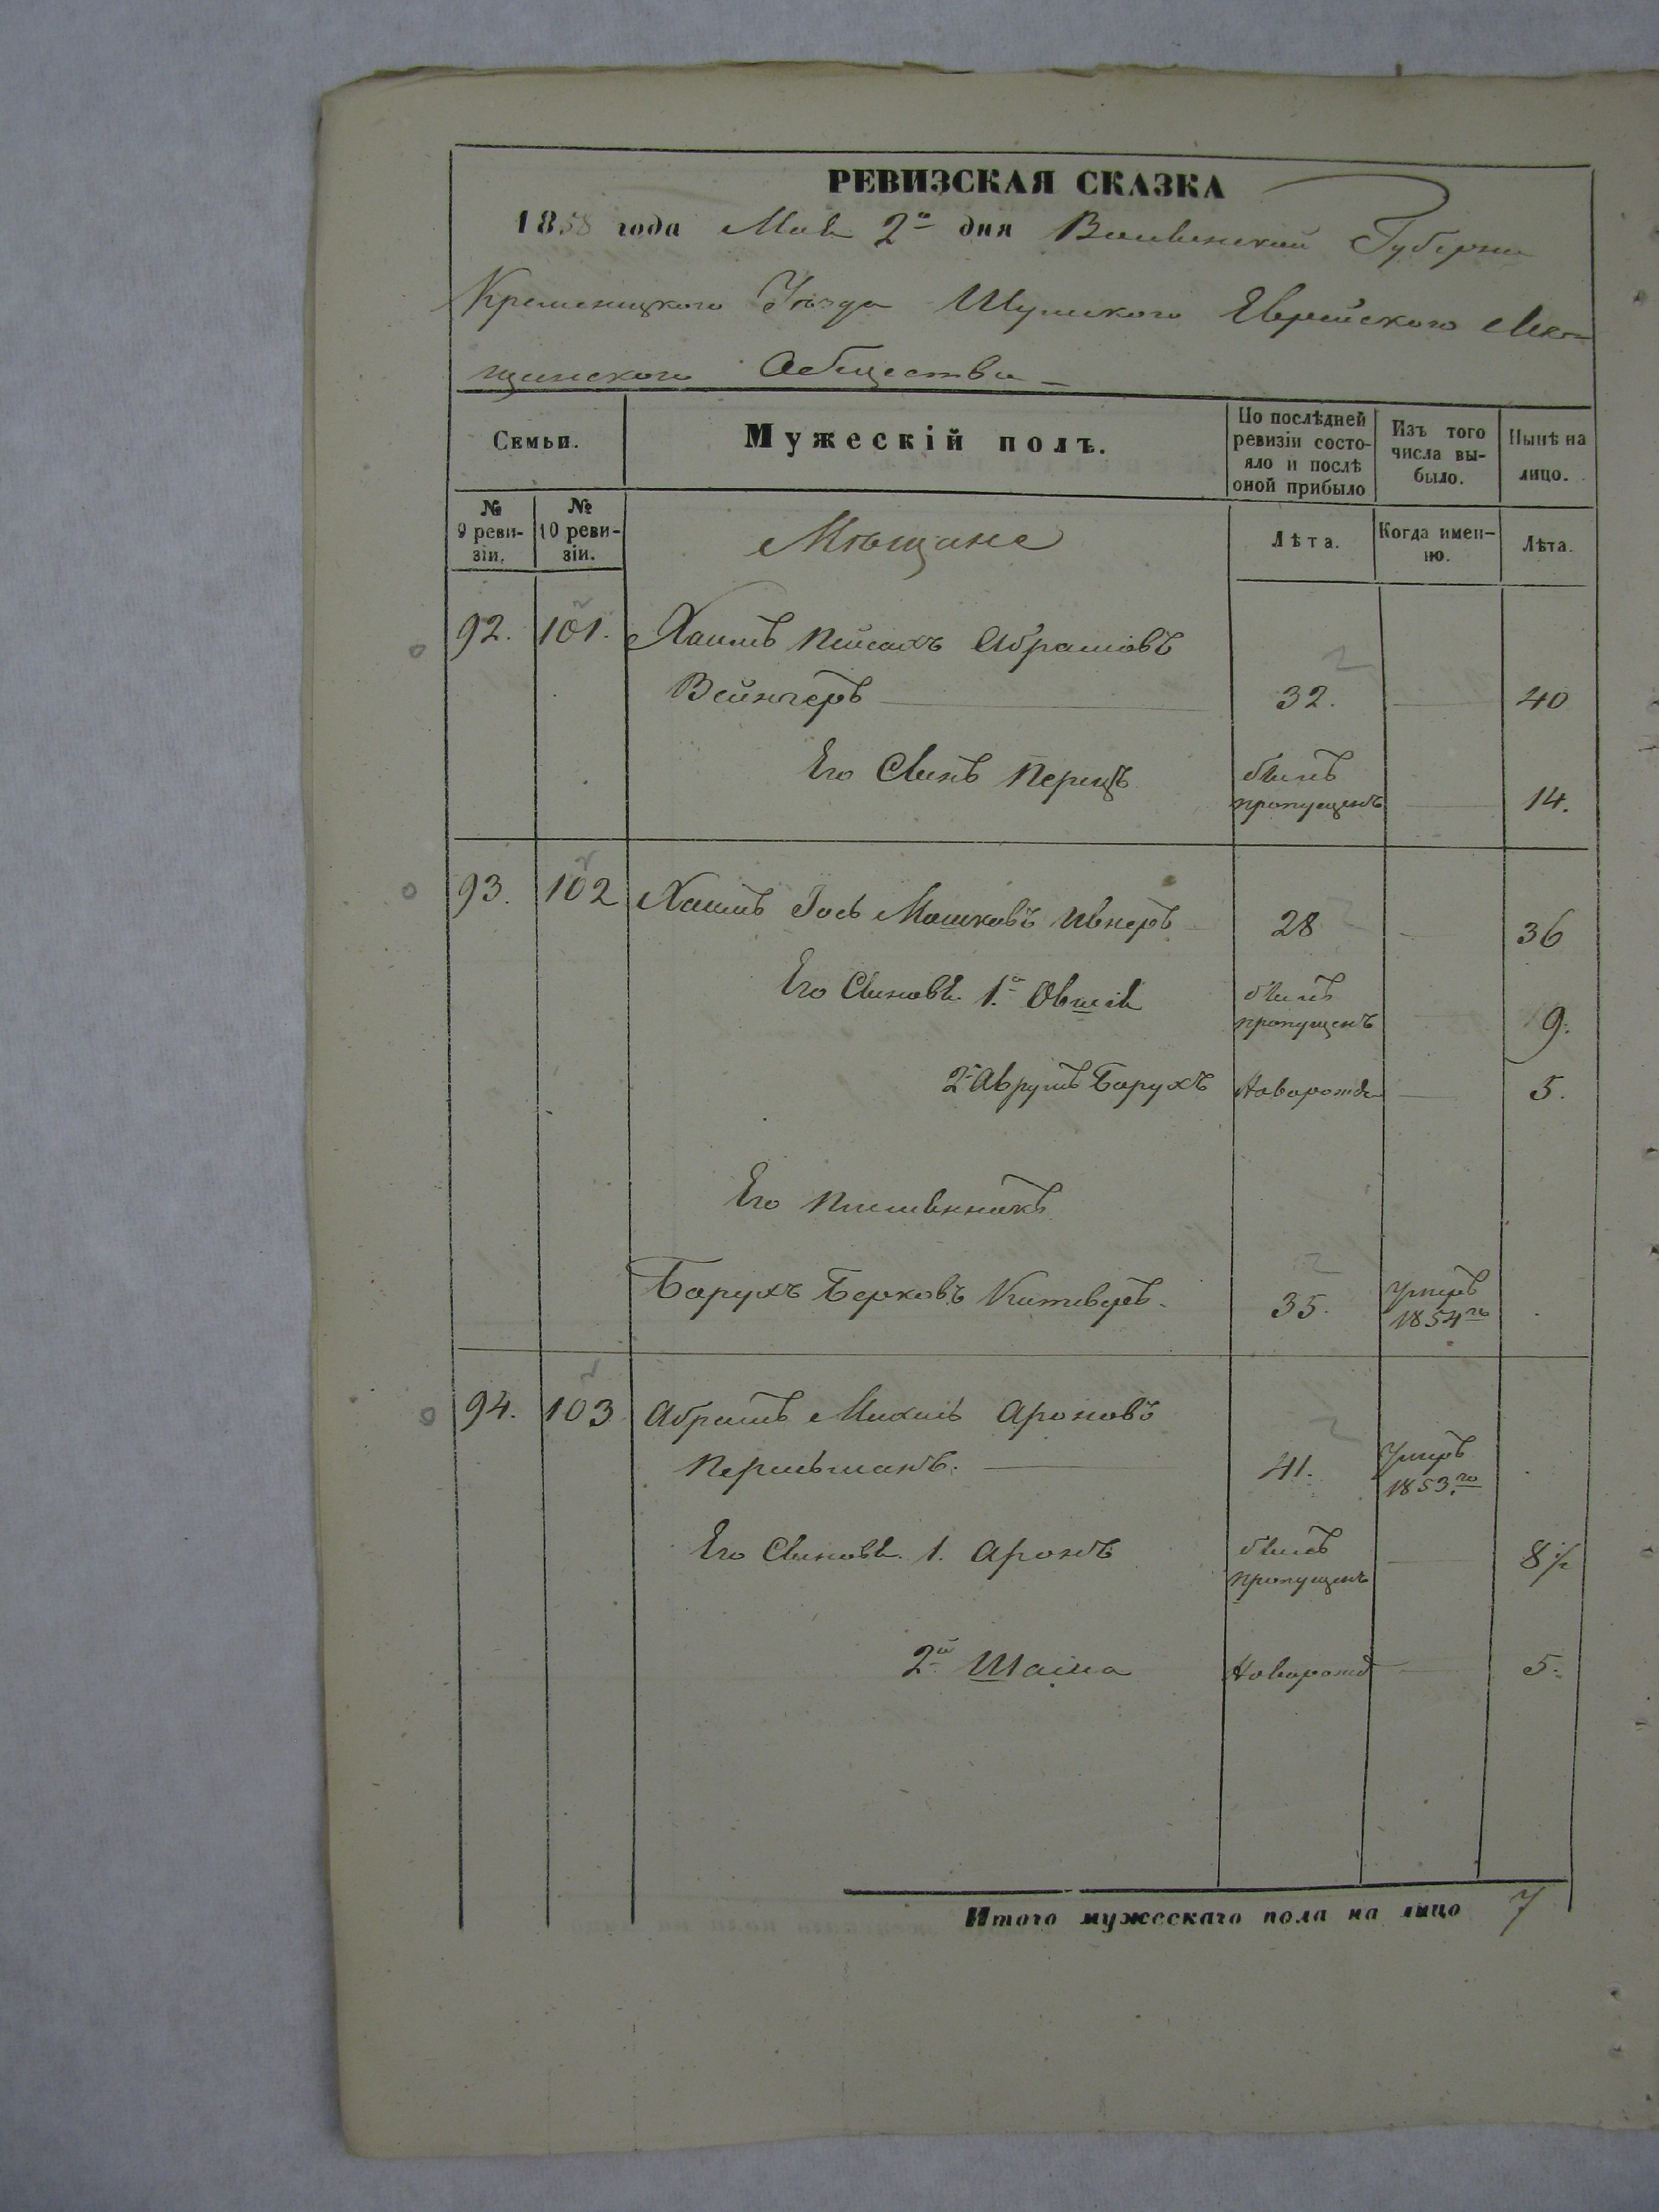 РЕВИЗСКАЯ СКАЗКА
1858 года Мая 2го дня Волынской Губернии
Кременицкого Уѣзда Шумского Еврейского Мѣ-
щанского Общества
Семьи. Мужескій полъ. По послѣдней ревизіи состо-яло и послѣ оной прибыло Изъ того числа вы-было. Нынѣ на лицо.
№ 9 реви-зіи. № 10 реви-зіи. Мѣщане Лѣта. Когда имен-но. Лѣта.
92. 101. Хаимъ Пейсахъ Абрамовъ
Вейнчеръ 32. 40
Его Сынъ Перецъ былъ пропущенъ 14.
93. 102 Хаимъ Іось Мошковъ Ивнеръ 28 36
Его Сыновья 1й Овшія былъ пропущенъ 9.
2й Аврумъ Барухъ Новорожд 5.
Его Племянникъ
Барухъ Берковъ 35. Умеръ 1854го
94. 103 Абрамъ Михель Ароновъ
Перельманъ. 41. Умеръ 1853го
Его Сыновья 1. Аронъ былъ пропущенъ 8½
2й Шаіма Новорожд 5.
Итого мужескаго пола на лицо 7